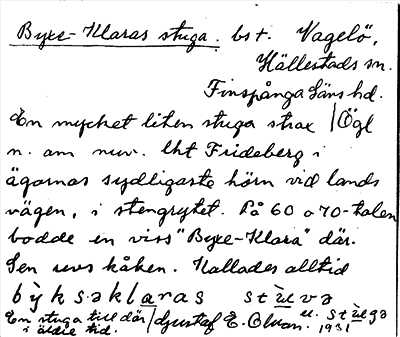 Byxe-Klaras stuga. bst. Vagelö,
Hällestads sn.
Finspånga läns hd.
En mycket liten stuga strax / Ögl
n. om nuv. lht Frideberg i
ägornas sydligaste hörn vid lands
vägen, i stengrytet. På 60 o 70-talen
bodde en viss "Byxe-Klara" där.
Sen revs kåken. Kallades alltid
bỳksəklaras stùvə
En stuga till där / Gustaf E. Olsson. u. stùgə
i äldre tid. 1931